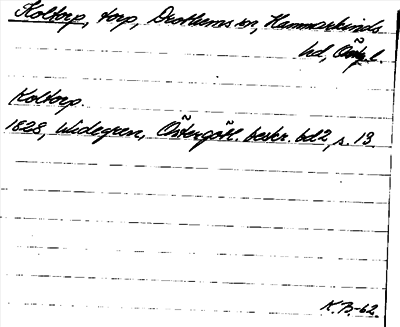 Koltorp, torp, Drothems sn, Hammarkinds
hd, Ög l.
Koltorp.
1828, Widegren, Östergötl. beskr. bd 2, s. 13
K.B.-62.